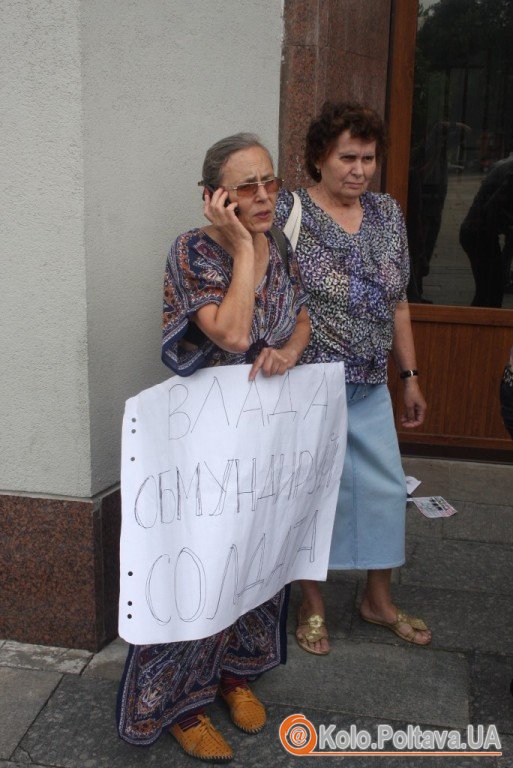 ВЛАДА
ОБМУНДИРУЙ
СОЛДАТА
@ Kolo.Poltava.UA